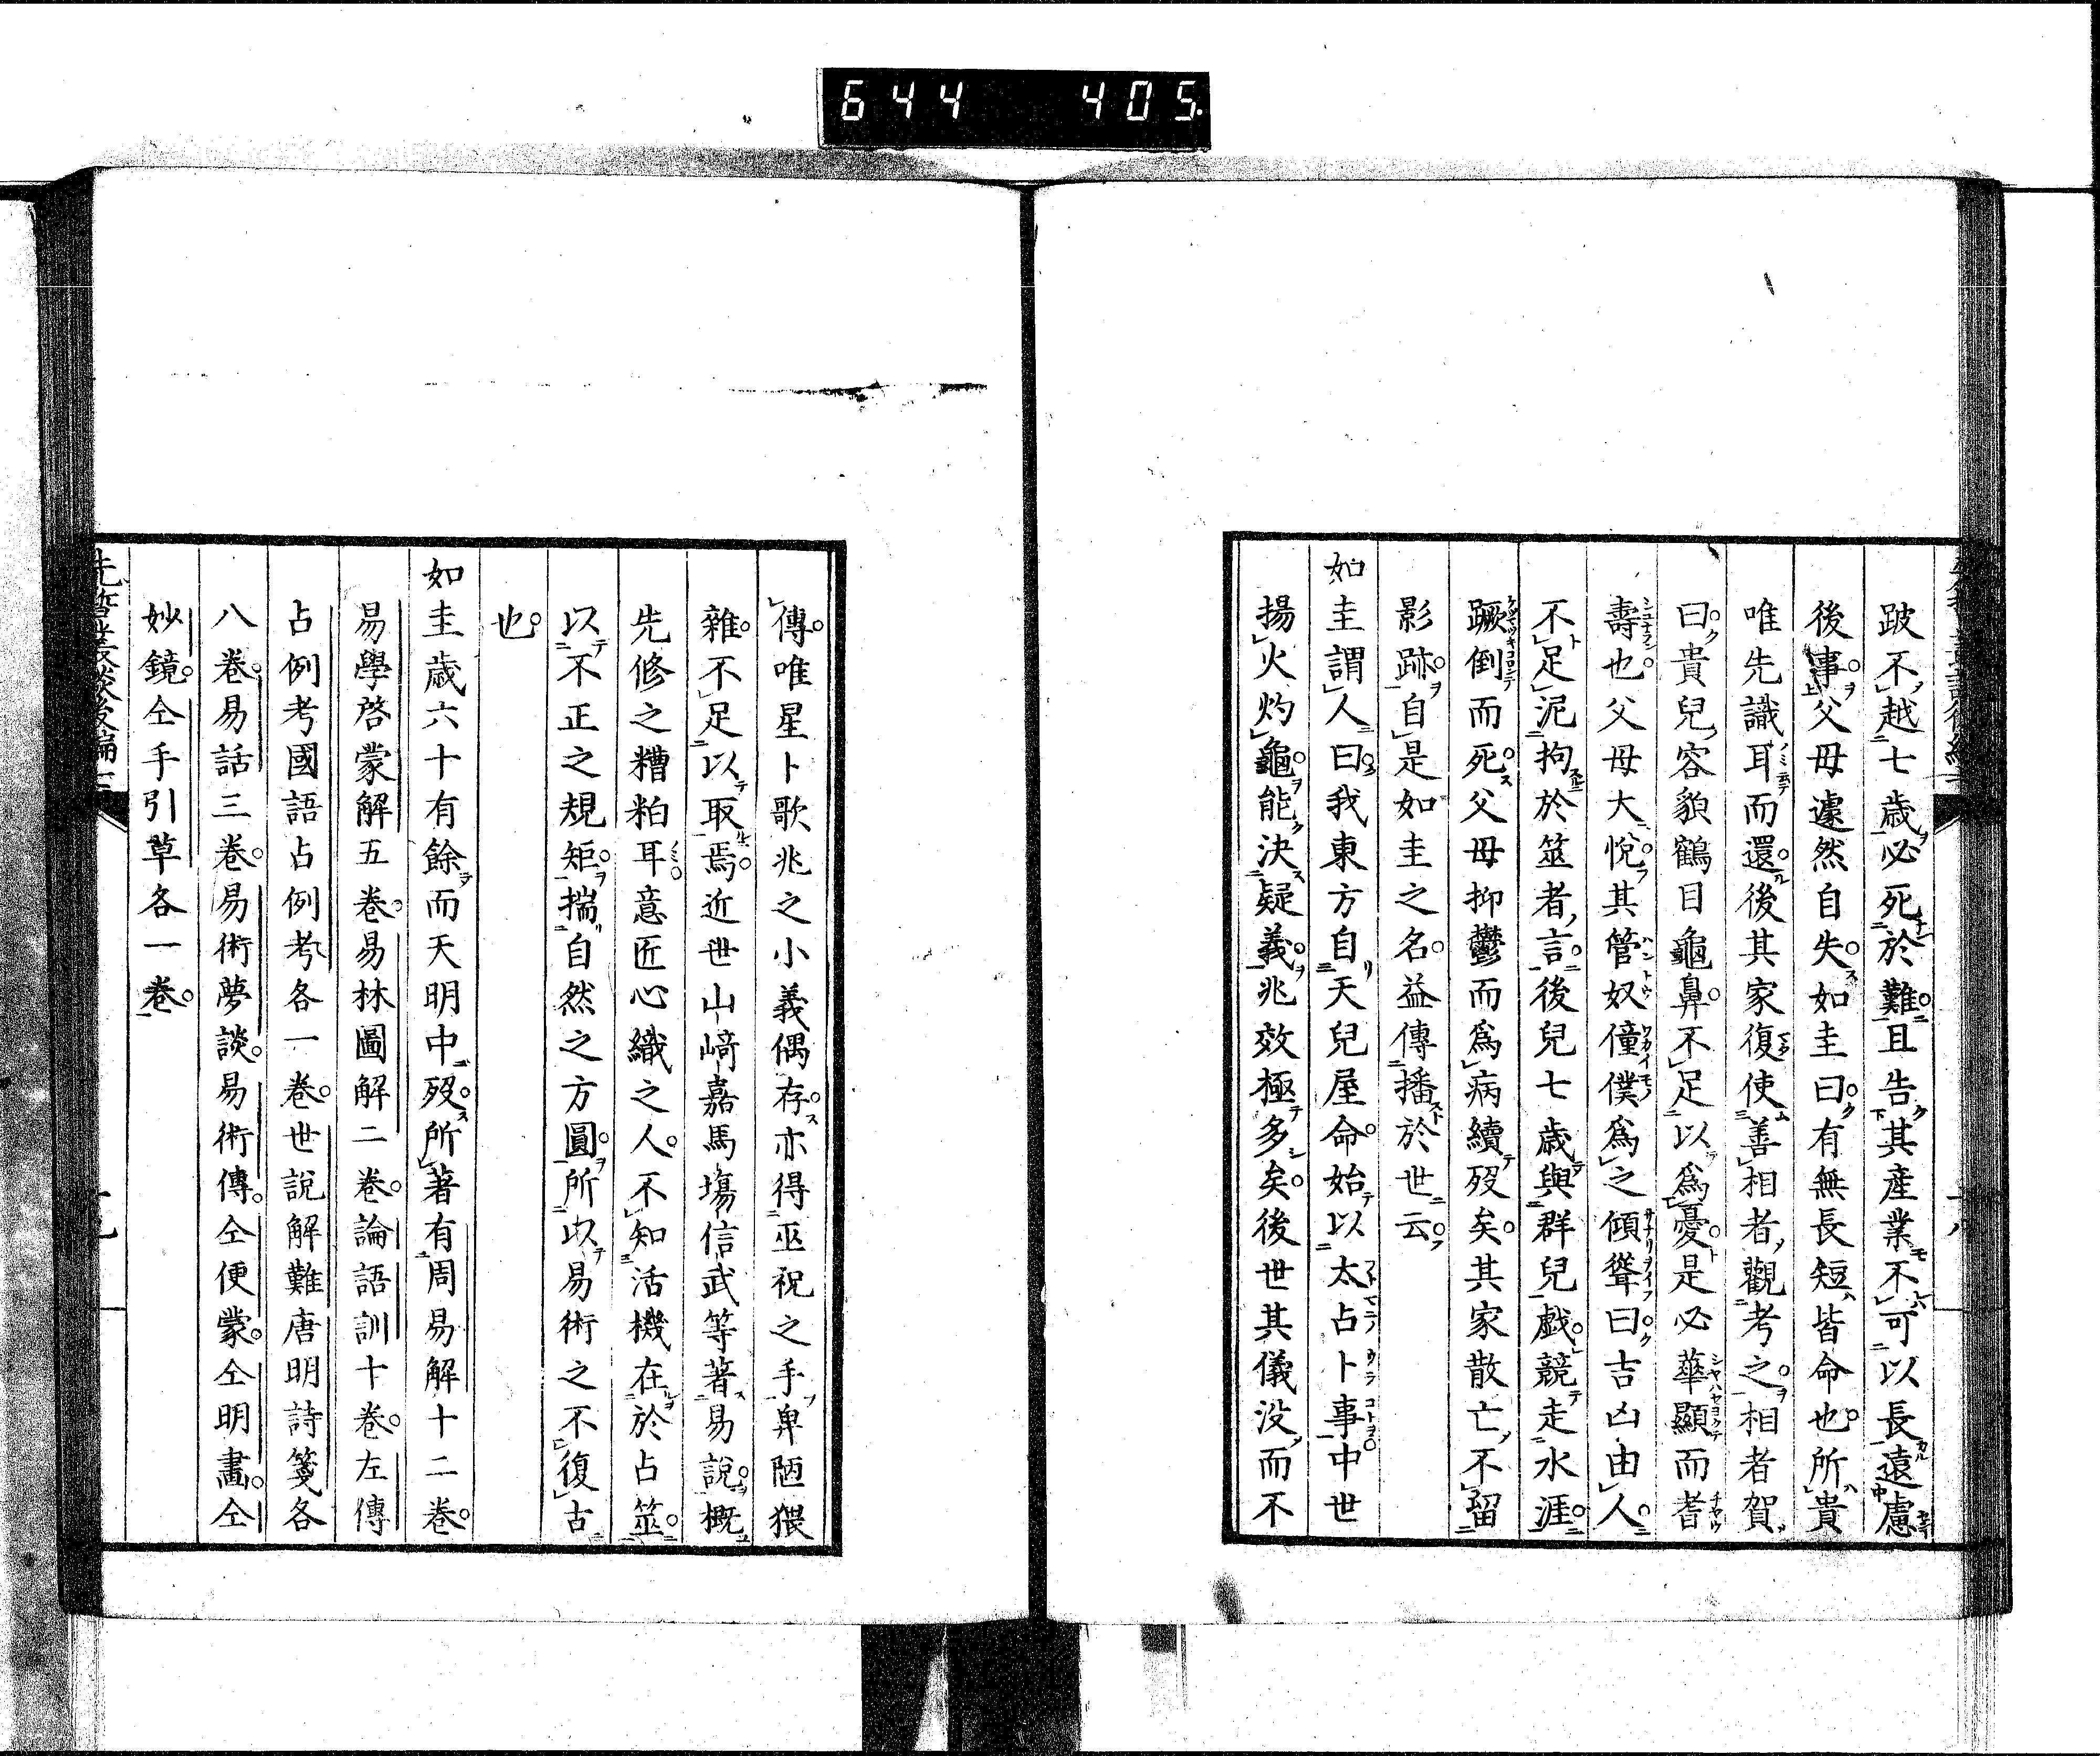 644 405
跛不越七歳必死於難且告其産業不可以長遠慮
後事父母遽然自失如圭曰有無長短皆命也所貴
唯先識耳而還後其家復使善相者觀考之相者賀
曰貴兒容貌鶴目龜鼻不足以爲憂是必華顯而耆
壽也父母大悅其管奴僮僕爲之傾聳曰吉凶由人
不足泥拘於筮者言後兒七歳與群兒戲競走水涯
蹶倒而死父母抑鬱而爲病續歿矣其家散亡不留
影跡自是如圭之名益傳播於世云
如圭謂人曰我東方自天兒屋命始以太占卜事中世
揚火灼龜能決疑義兆效極多矣後世其儀没而不
傳唯星卜歌兆之小義偶存亦得巫祝之手卑陋猥
雜不足以取焉近世山﨑嘉馬塲信武等著易說概
先修之糟粕耳意匠心織之人不知活機在於占筮
以不正之規矩揣自然之方圓所以易術之不復古
也
如圭歳六十有餘而天明中歿所著有周易解十二卷
易學啓蒙解五卷易林圖解二卷論語訓十卷左傳
占例考國語占例考各一卷世說解難唐明詩箋各
八卷易話三卷易術夢談易術傳仝便蒙仝明畵仝
妙鏡仝手引草各一卷
先哲叢談後編